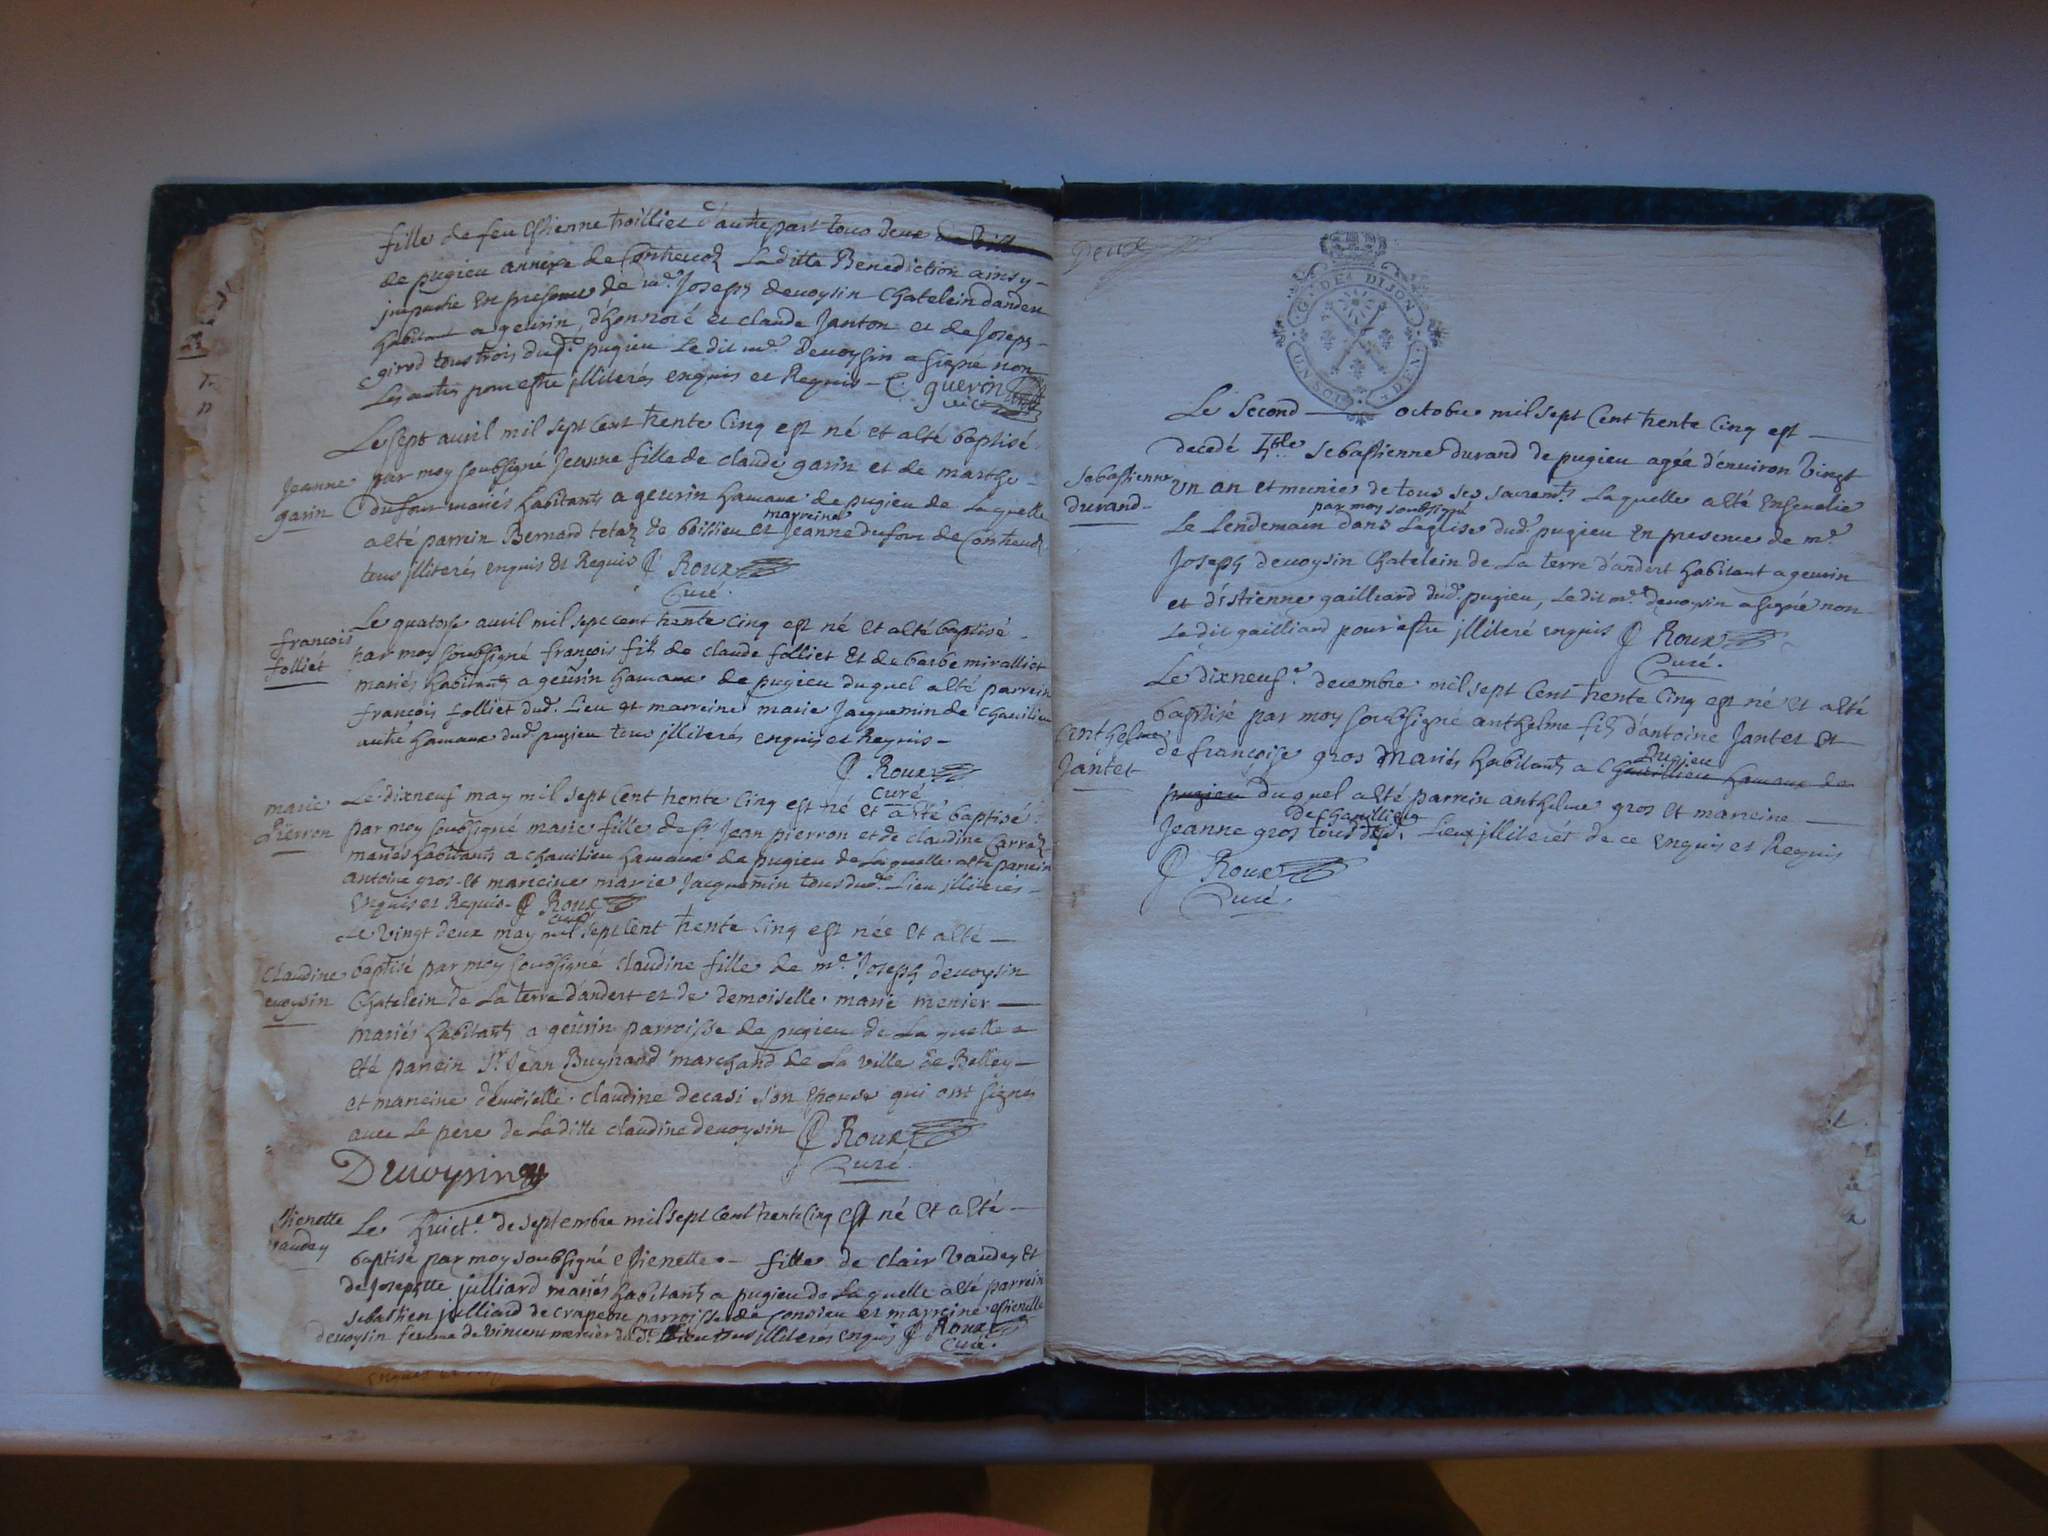 fille de feu Estienne troilliet d'autre part tous deux
de pugieu annexe de Contreuoz La ditte Benediction ainsy
impartie En presence de me. Joseph deuoysin Chatelein dandert
habitant a geurin, d'honnoré et claude Janton et de Joseph
girod tous trois dud. pugieu Le dit me. deuoysin a signé non
Les autres pour estre illiterés enquis et Requis - C. guerin
vic
Le sept auril mil sept Cent trente Cinq est né et a été baptisé
par moy soubsigné Jeanne fille de claude garin et de marthe
Jeanne
garin
dufour mariés habitants a geurin hamaux de pugieu de Laquelle
marreine
a été parrein Bernard tetaz de boissieu et Jeanne dufour de Contreuoz
tous illiterés enquis et Requis J Roux
Curé.
Le quatorse auril mil sept cent trente cinq est né et a été baptisé
françois
folliet
par moy soubsigné françois fils de claude folliet et de barbe miralliet
mariés habitants a geurin hamaux de pugieu duquel a été parrein
françois folliet dud. Lieu et marreine marie Jacquemin de Chauilieu
autre hamaux dud. pugieu tous illiterés enquis et Requis
J Roux
curé
Le dixneuf may mil sept Cent trente Cinq est né et a été baptisé
marie
Pierron
par moy soubsigné marie fille de sr. Jean pierron et de claudine Carraz
mariés habitants a Chauilieu hamaux de pugieu de Laquelle a été parrein
antoine gros et mareine marie Jacquemin tous dud. Lieu illiteres
Enquis et Requis J Roux
curé
Le vingt deux may mil sept Cent trente Cinq est née et a été
Claudine
deuoysin
baptisé par moy soubsigné claudine fille de me. Joseph deuoysin
Chatelein de La terre d'andert et de demoiselle marie menier
mariés habitants a geurin parroisse de pugieu de La quelle a
été parrein Sr Jean Buynand marchand de La ville de Belley
et mareine demoiselle claudine decasi son Epouse qui ont signes
auec Le pere de La ditte claudine deuoysin J Roux
Curé.
Deuoysin
Le huict.e de septembre mil sept Cent trente Cinq est né et a été
Estienette
vauday
baptisé par moy soubsigné estienette fille de clair Vauday et
de Josephtte julliard mariés habitants a pugieu de Laquelle a été parrein
sebastien julliard de crapeou parroisse de Consieu et marreine estienette
deuoysin femme de vincent mercier dud. Lieu tous illiterés enquis J Roux
Curé.
Deux
G. DE DIJON
UN SOL
Le Second octobre mil sept Cent trente Cinq est
decedé sebastienne durand de pugieu agée d'enuiron Vingt
Sebastienne
durand
un an et munies de tous ses sacremts. Laquelle a été Enseuelie
par moy soubsigné
Le Lendemain dans Leglise dud. pugieu en presence de me.
Joseph deuoysin Chatelein de La terre d'andert habitant a geurin
et d'estienne gailliard dud. pugieu, Le dit me. deuoysin a signé non
Le dit gailliard pour estre illiteré enquis J Roux
Curé.
Le dixneuf.e decembre mil sept Cent trente Cinq est né et a été
baptisé par moy soubsigné anthelme fils d'antoine Jantet et
anthelme
Jantet
Pugieu
de françoise gros Mariés habitants a Chauillieu hamaux de
pugieu duquel a été parrein anthelme gros et mareine
de Chauillieu
Jeanne gros tous dud. Lieux illiterés de ce enquis et Requis
J Roux
Curé.